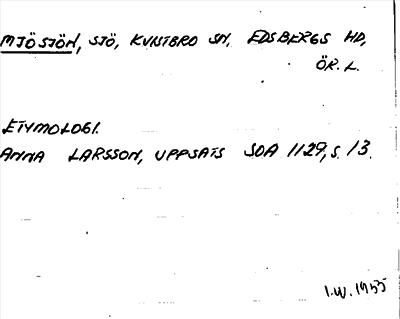 MJÖSJÖN, SJÖ, KVISTBRO SN, EDSBERGS HD,
ÖR. L.
ETYMOLOGI.
ANNA LARSSON, UPPSATS SOA 1129, S. 13.
I.W. 1955